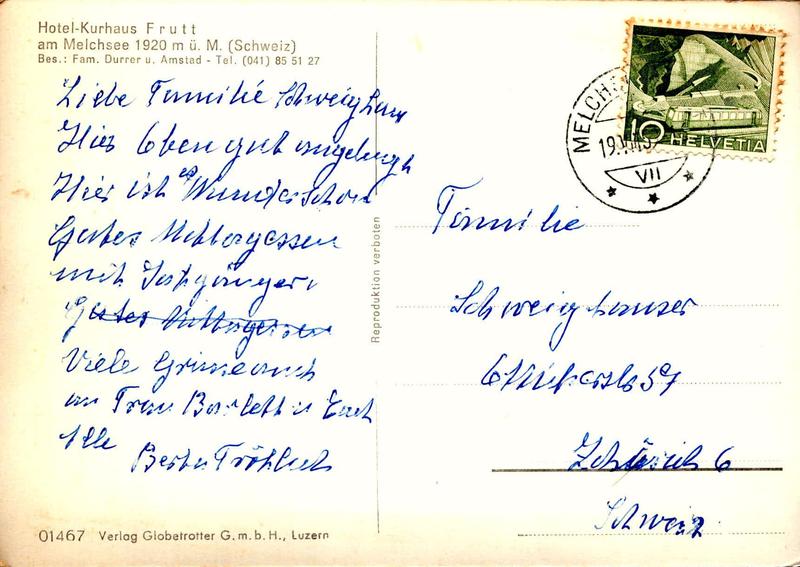 Hotel-Kurhaus Frutt
am Melchsee 1920 m ü. M. (Schweiz)
Bes.: Fam. Durrer u. Amstad - Tel. (041) 85 51 27
Liebe Familie
Hier Oben gut
Hier ist es Wunderschön
Gutes Mittagessen
mit
Gutes Mittagessen
Viele Grüsse auch
an Frau Bartlett u Euch
Alle
Berta Fröhlich
01467 Verlag Globetrotter G.m.b.H., Luzern
Reproduktion verboten
MELCH
19.
VII
10 HELVETIA
Familie
Schweighauser
57
Zürich 6
Schweiz